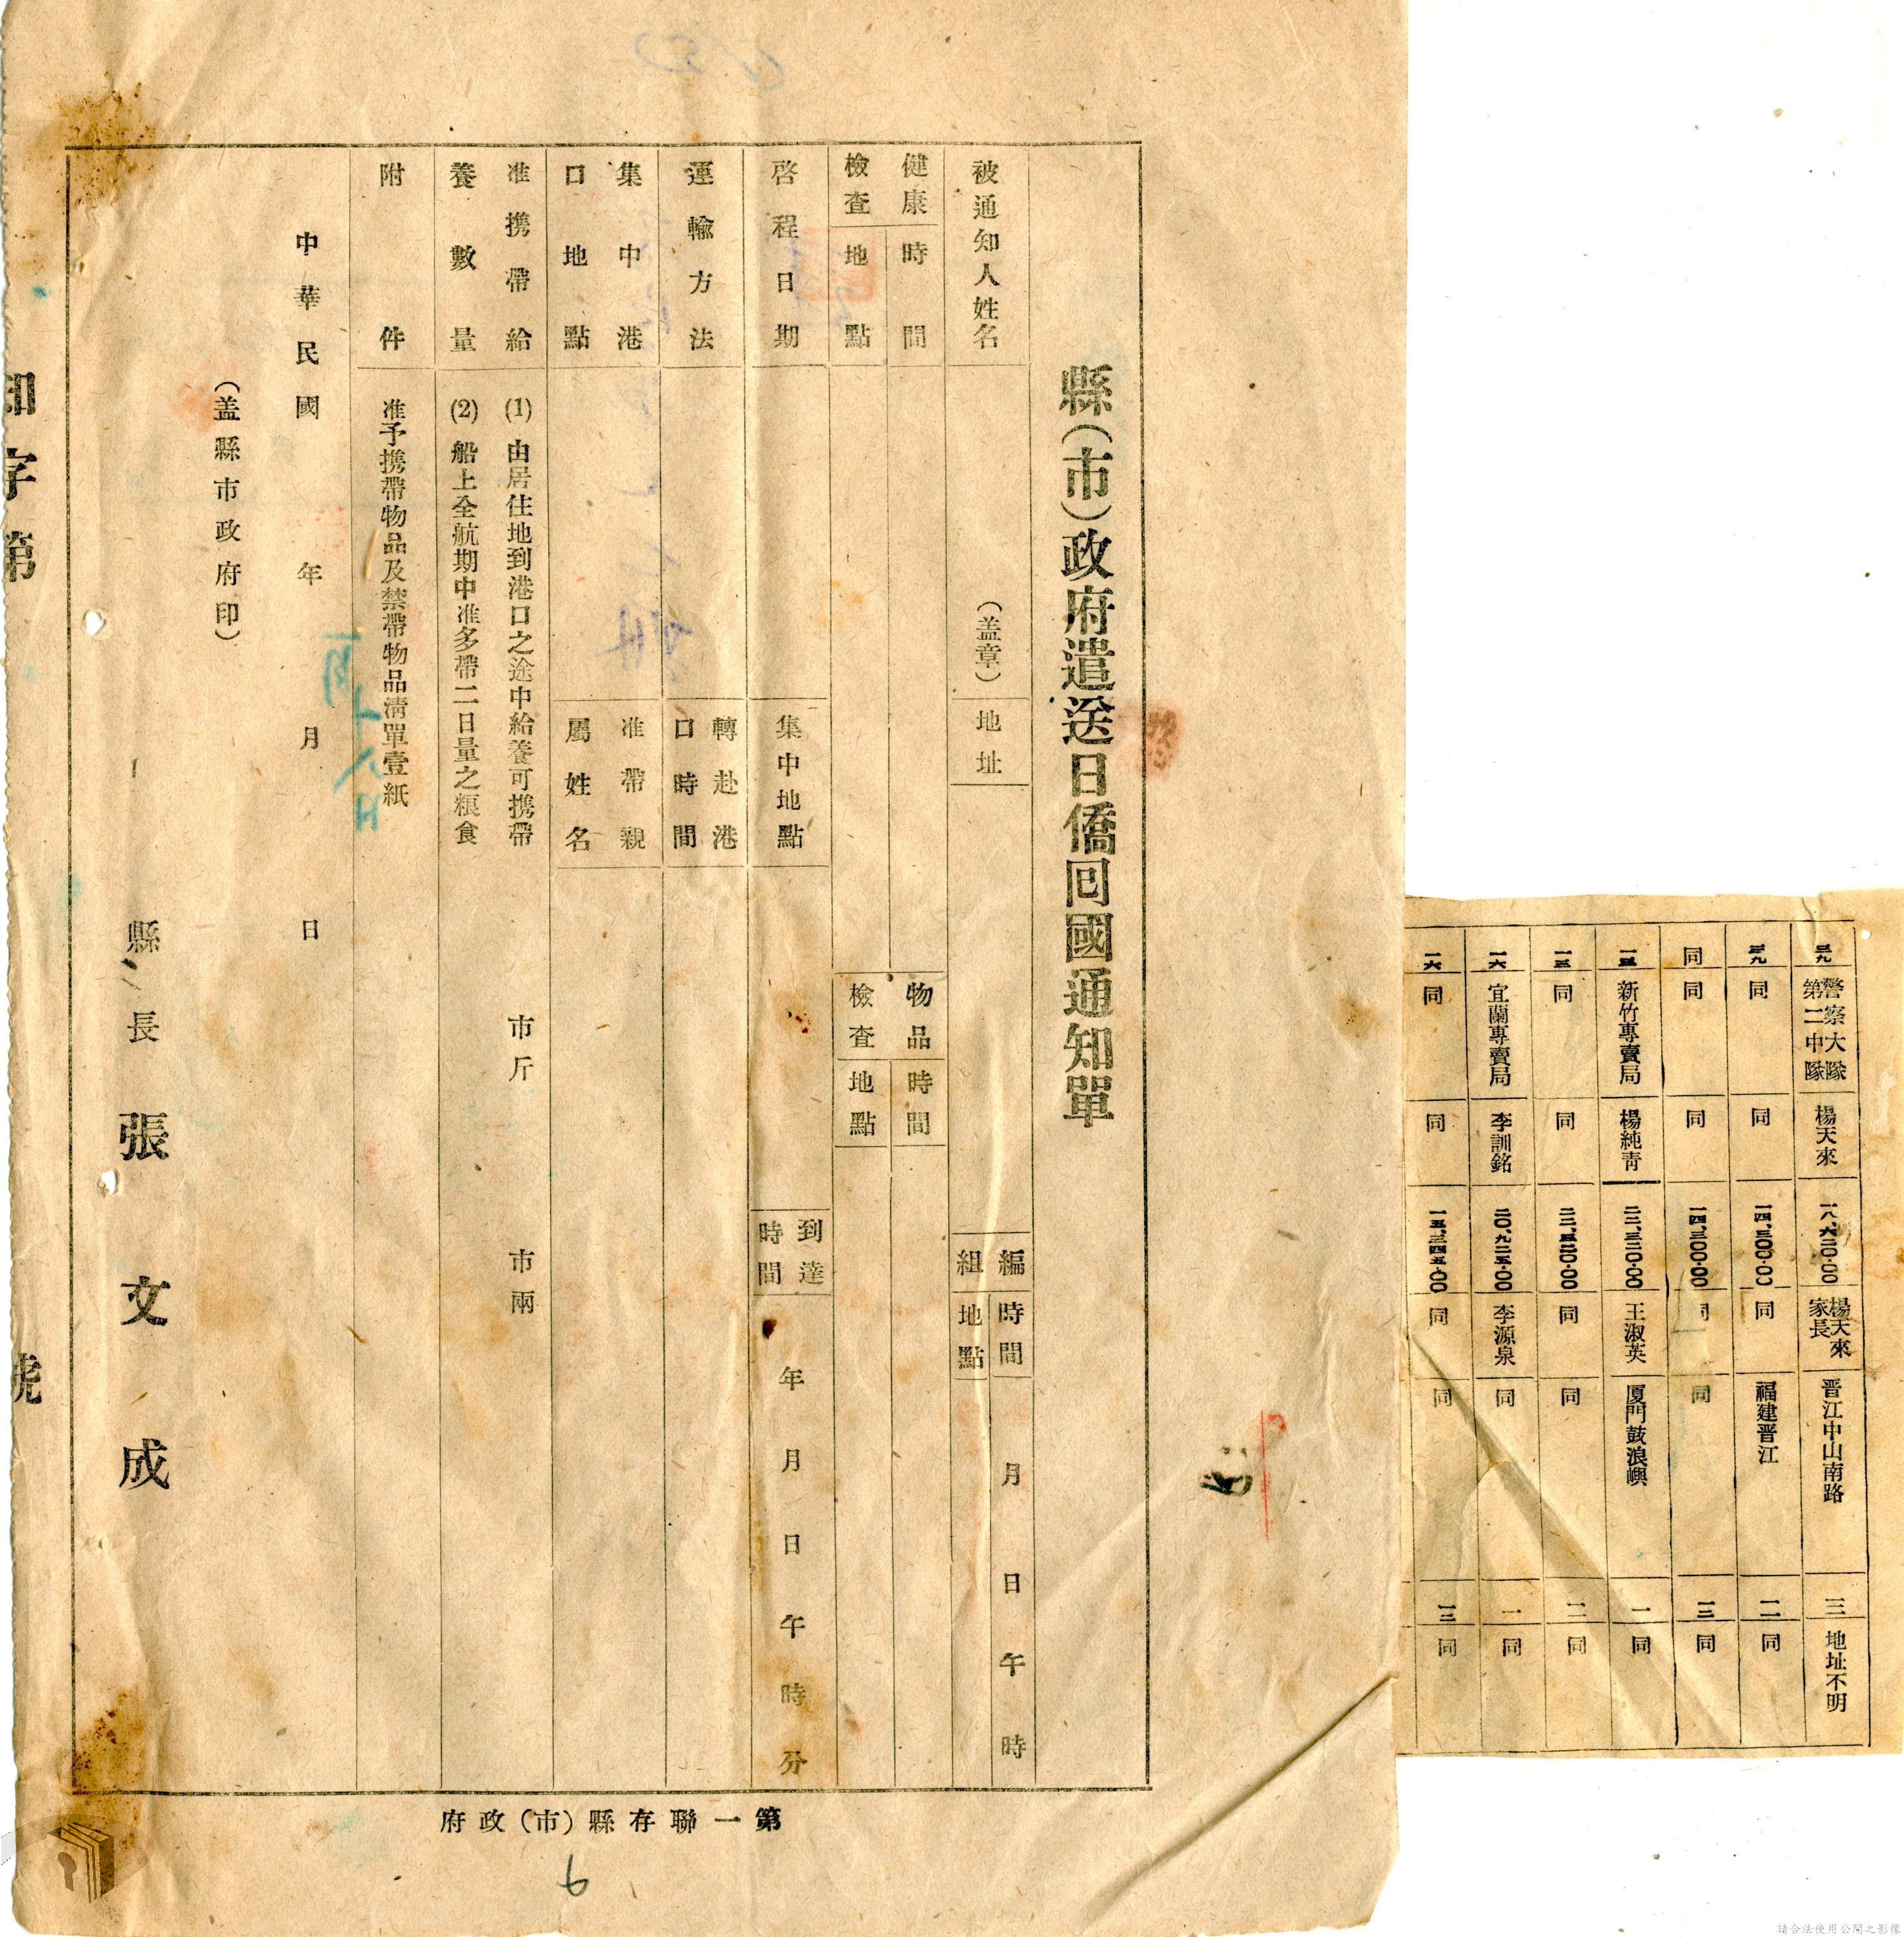 縣(市)政府遣送日僑囘國通知單
被通知人姓名
(盖章)
地址
編組
時間
月 日 午 時
地點
健康檢查
時間
地點
物品檢查
時間
地點
啓程日期
集中地點
到達時間
年 月 日 午 時 分
運輸方法
轉赴港口時間
集中港口地點
准帶親屬姓名
准携帶給養數量
(1) 由居住地到港口之途中給養可携帶 市斤 市兩
(2) 船上全航期中准多帶二日量之粮食
附件
准予携帶物品及禁帶物品清單壹紙
中華民國 年 月 日
(盖縣市政府印)
縣長 張文成
知字第 號
第一聯存縣(市)政府
6
三九 警察大隊第二中隊 楊天來 一八、六二〇·〇〇 楊天來家長 晋江中山南路 三 地址不明
三九 同 同 一四、三〇〇·〇〇 同 福建晋江 二 同
同 同 同 一四、三〇〇·〇〇 同 同 三 同
新竹專賣局 楊純青 二二、三二〇·〇〇 王淑英 厦門鼓浪嶼 一 同
一三 同 同 同 同 二 同
一六 宜蘭專賣局 李訓銘 二〇、九二五·〇〇 李源泉 同 一 同
一六 同 同 一五、三四五·〇〇 同 同 三 同
請合法使用公開之影像